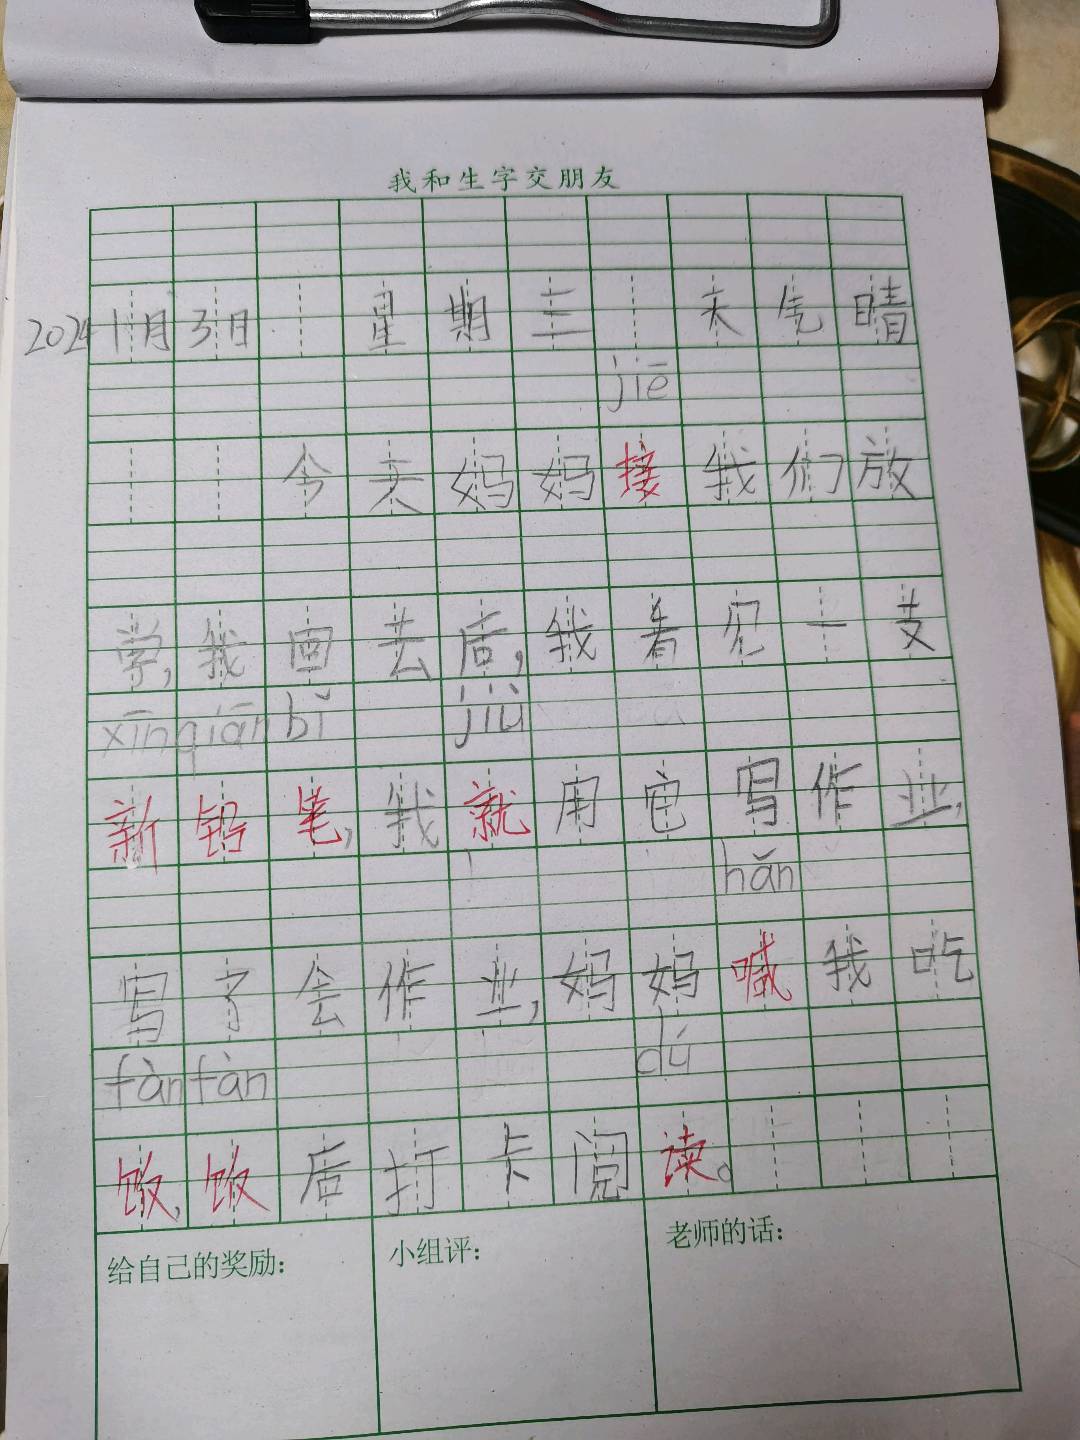 我和生字交朋友
2024 1月3日 星期三 天气晴
jiē
今天妈妈接我们放
学,我回去后,我看见一支
xīn qiān bǐ jiù
新铅笔,我就用它写作业,
hǎn
写了会作业,妈妈喊我吃
fàn fàn dú
饭,饭后打卡阅读。
给自己的奖励: 小组评: 老师的话: